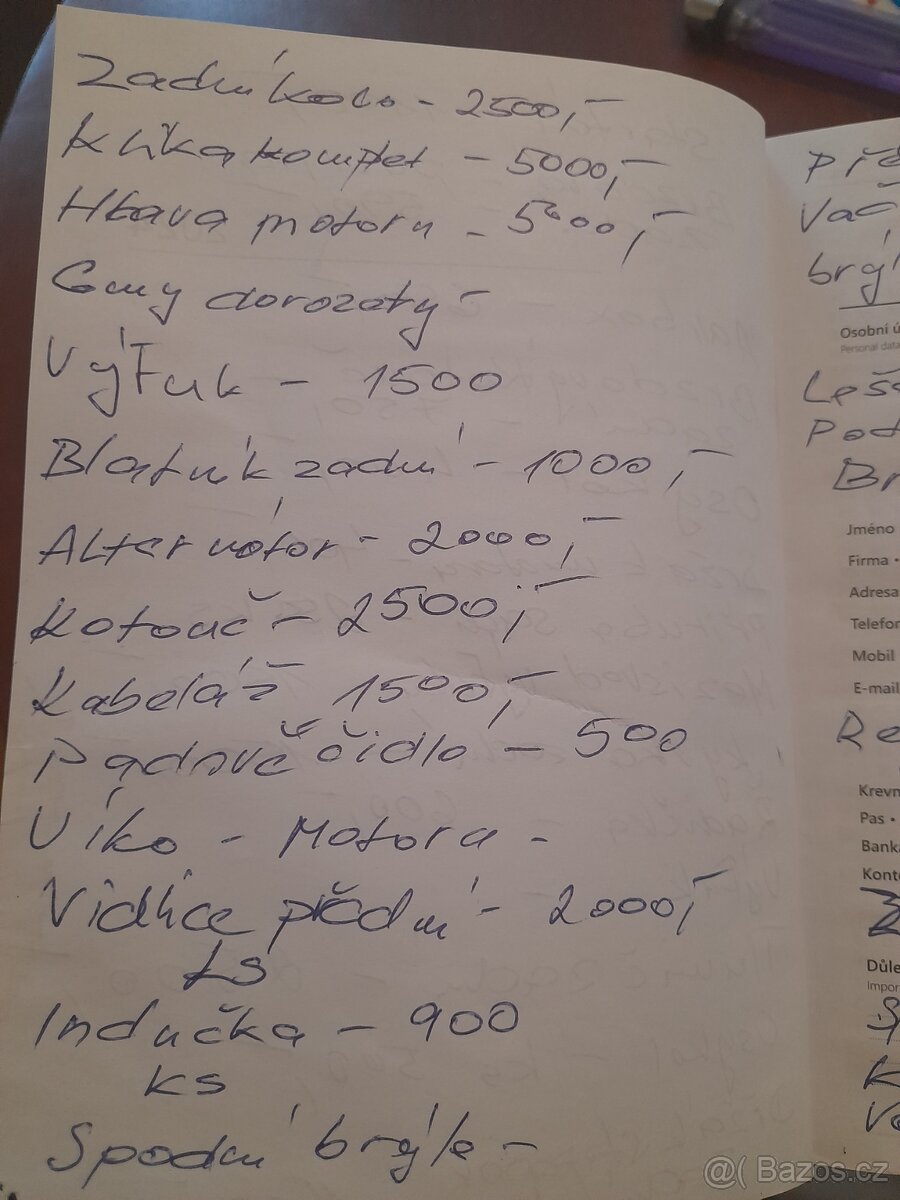 Zadní kolo - 2500,-
Klika komplet - 5000,-
Hlava motoru - 5000,-
Gumy dorozaty -
Výfuk - 1500
Blatník zadní - 1000,-
Alternátor - 2000,-
Kotouč - 2500,-
Kabeláž 1500,-
Padové čidlo - 500
Víko - Motoru -
Vidlice přední - 2000,-
ks
Indučka - 900
ks
Spodní brýle -
Př
Vač
brýl
Osobní ú
Personal data
Leš
Pod
Br
Jméno
Firma •
Adresa
Telefon
Mobil
E-mail
Re
Krevn
Pas •
Banka
Konto
Důle
Impor
@( Bazos.cz